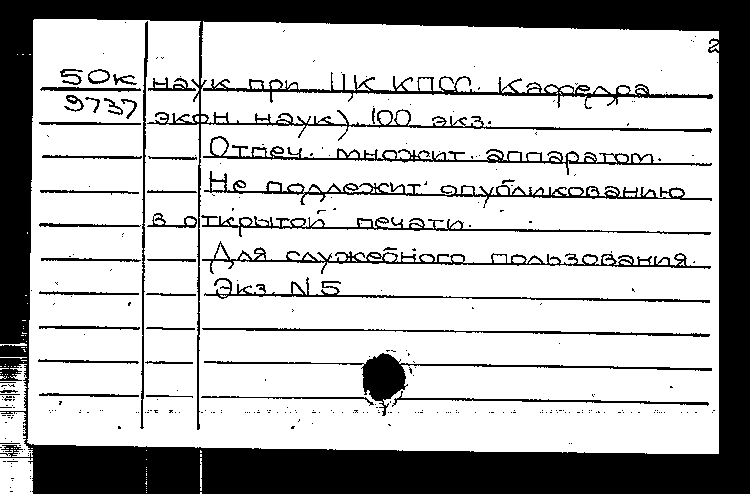 2
50к наук при ЦК КПСС. Кафедра
9737 экон. наук). 100 экз.
Отпеч. множит. аппаратом.
Не подлежит опубликованию
в открытой печати.
Для служебного пользования.
Экз. N 5